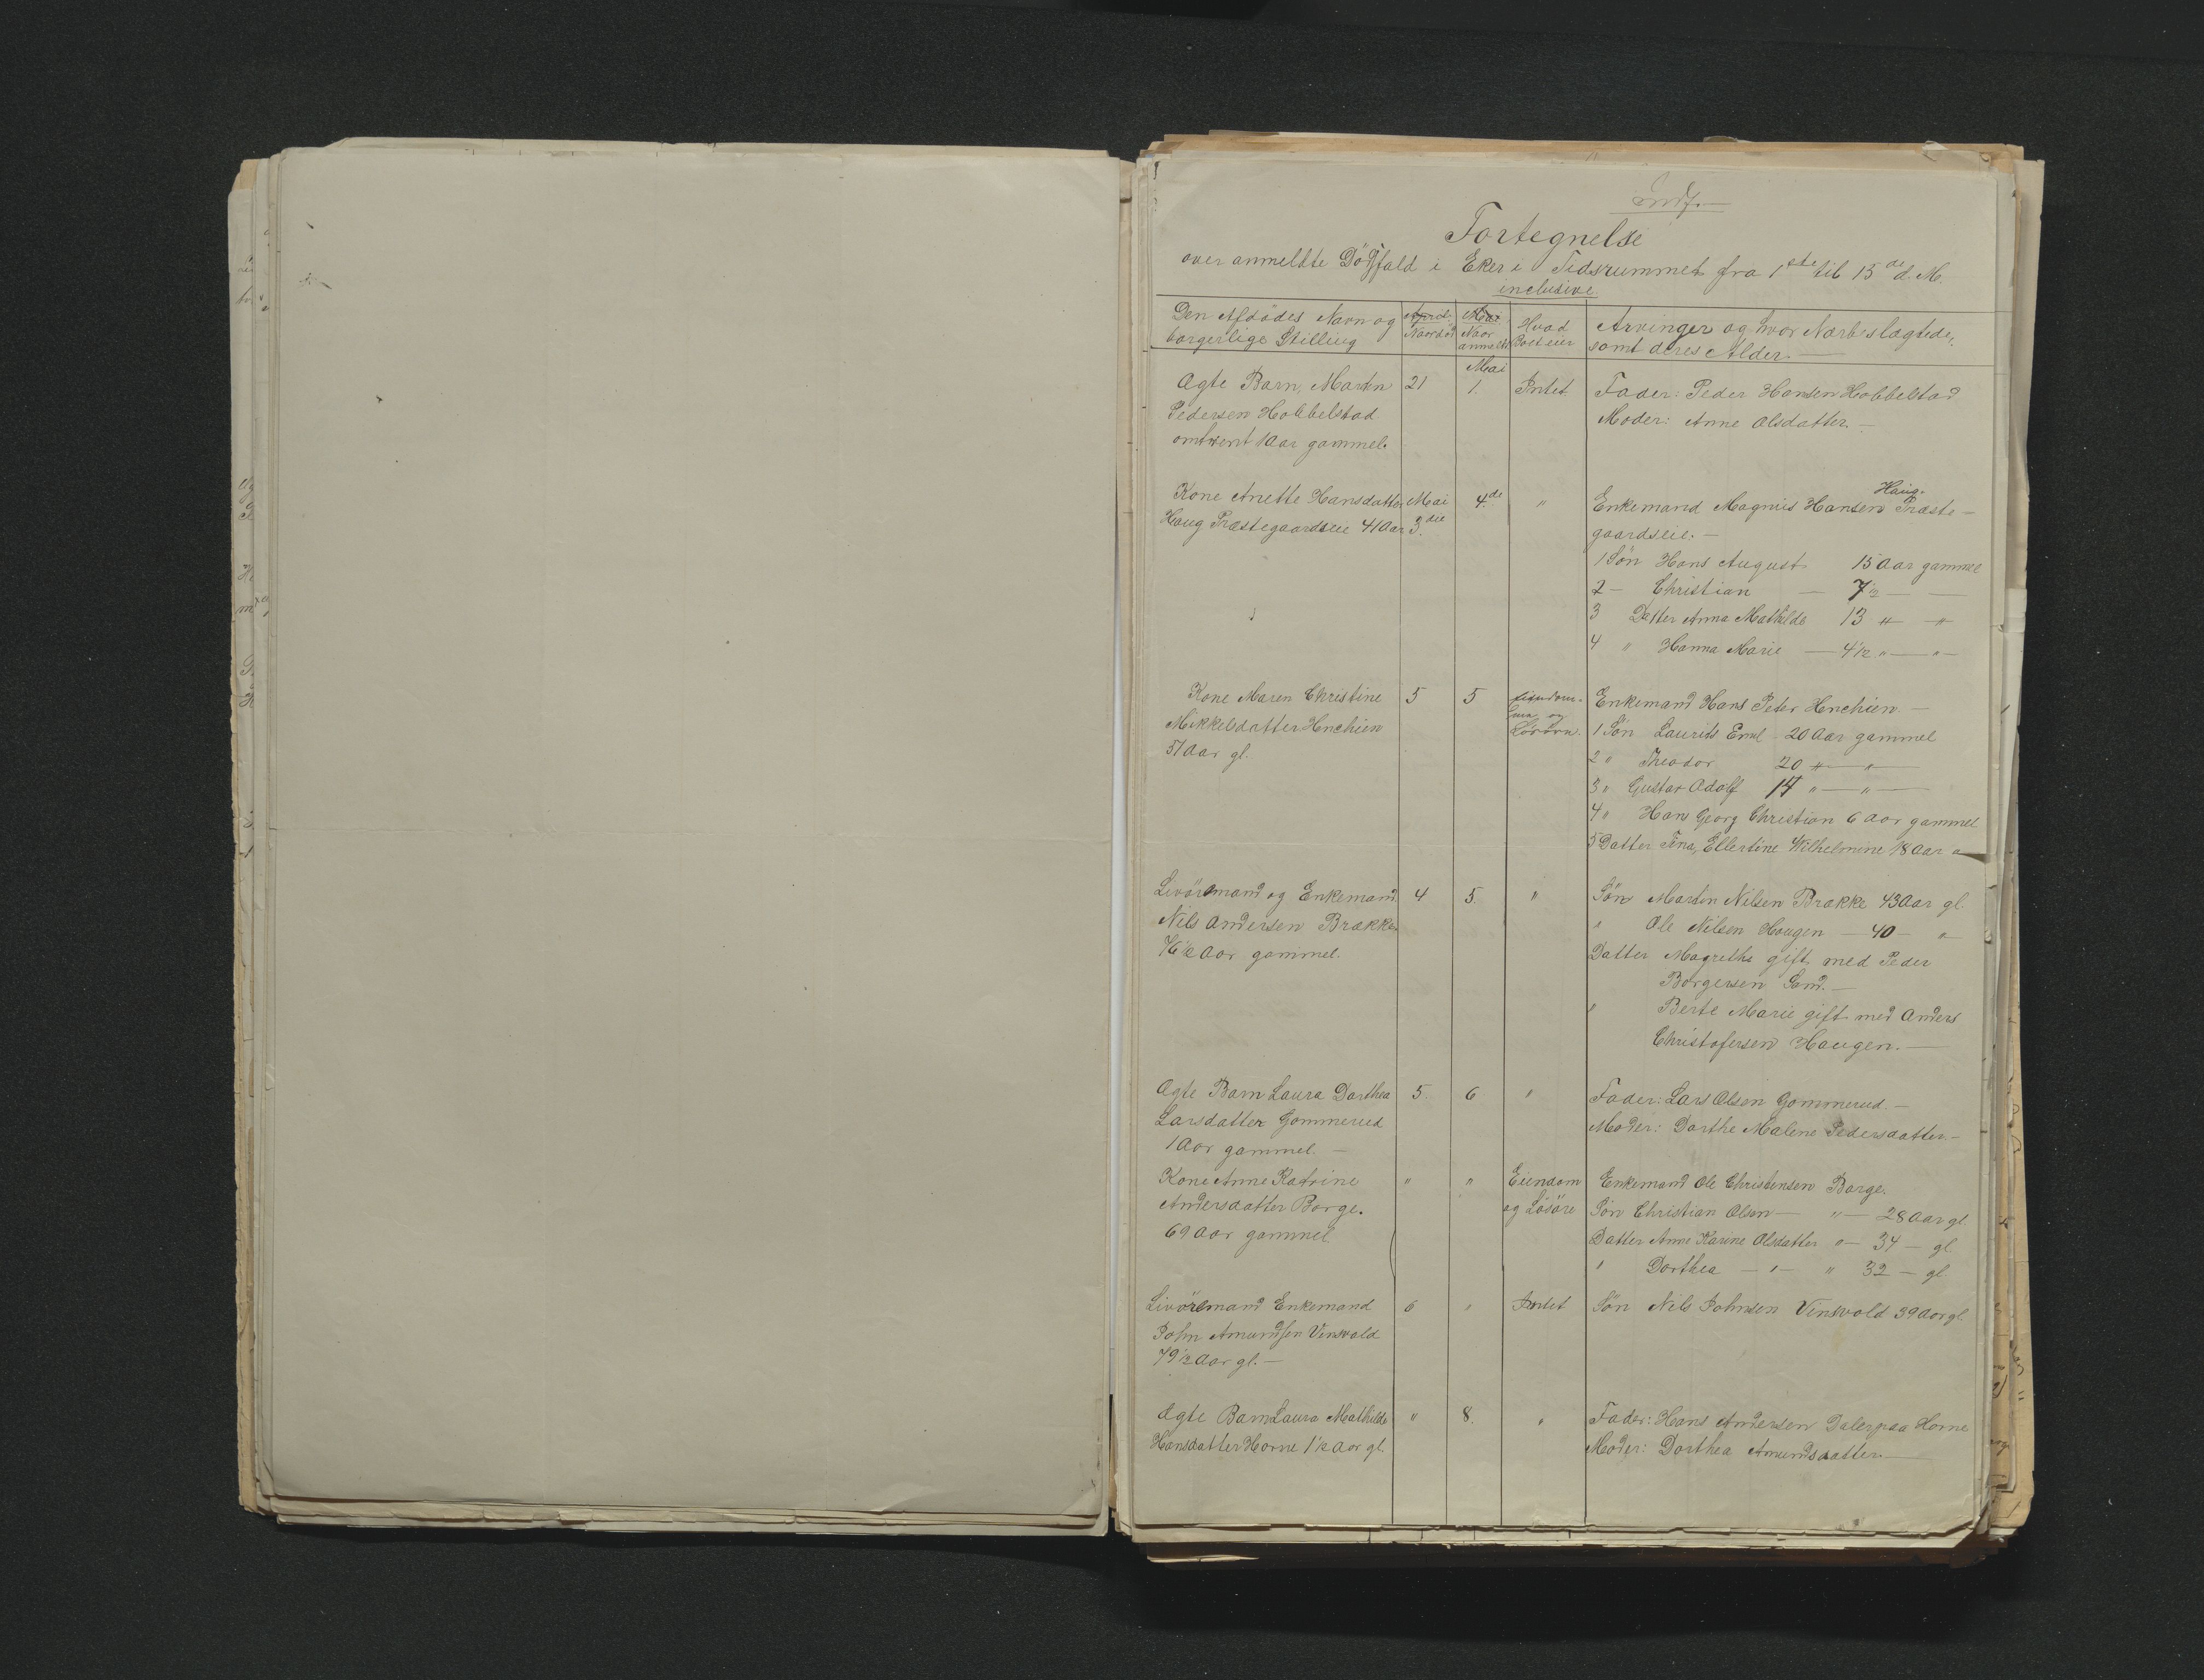 Indf.
Fortegnelse
over anmeldte Dödsfald i Eker i Tidsrummet fra 1ste til 15de d. M.
inclusive
Den Afdödes Navn og borgerlige Stilling
April Naar död
Mai Naar anmeldt
Hvad Boet eier
Arvinger og hvor Nærbeslægtede, samt deres Alder. —
Mai
Ægte Barn, Martin 21 1. Intet Fader: Peder Hansen Hobbelstad
Pedersen Hobbelstad Moder: Anne Olsdatter. —
omtrent 1 Aar gammel.
Haug.
Kone Anette Hansdatter Mai 4de " Enkemand Magnus Hansen Præste-
Haug Præstegaardseie 41 Aar 3die gaardseie. —
1 Sön Hans August 15 Aar gammel
2 — Christian — 7 1/2 — —
3 Datter Anna Mathilde 13 " — "
4 " Hanna Marie — 4 1/2 " — " —
Kone Maren Christine 5 5 Eiendom Enkemand Hans Peter Henchien. —
Mikkelsdatter Henchien og Lösöre. 1 Sön Laurits Emil 20 Aar gammel
51 Aar gl. 2 " Theodor 20 " — " —
3 " Gustav Adolf 14 " — " —
4 " Hans Georg Christian 6 Aar gammel
5 Datter Tina, Ellertine Wilhelmine 18 Aar "
Livöremand og Enkemand 4 5. " Sön Martin Nilsen Brække 43 Aar gl.
Nils Andersen Brække " Ole Nilsen Haugen — 40 — "
76 1/2 Aar gammel. Datter Magrethe gift med Peder
Borgersen Sand. —
" Berte Marie gift med Anders
Christofersen Haugen. —
Ægte Barn Laura Dorthea 5. 6 " Fader: Lars Olsen Gommerud. —
Larsdatter Gommerud Moder: Dorthe Malene Pedersdatter. —
1 Aar gammel. —
Kone Anne Katrine " " Eiendom Enkemand Ole Christensen Borge.
Andersdatter Borge. og Lösöre Sön Christian Olsen — " — 28 Aar gl
69 Aar gammel. Datter Anne Karine Olsdatter " — 34 — gl.
" Dorthea — " — " 32 — gl.
Livöremand Enkemand 6 " Intet Sön Nils Johnsen Vinsvold 39 Aar gl.
John Amundsen Vinsvold
79 1/2 Aar gl. —
Ægte Barn Laura Mathilde " 8. " Fader: Hans Andersen Dalerpaa Horne
Hansdatter Horne 1 1/2 Aar gl. Moder: Dorthea Amundsdatter —